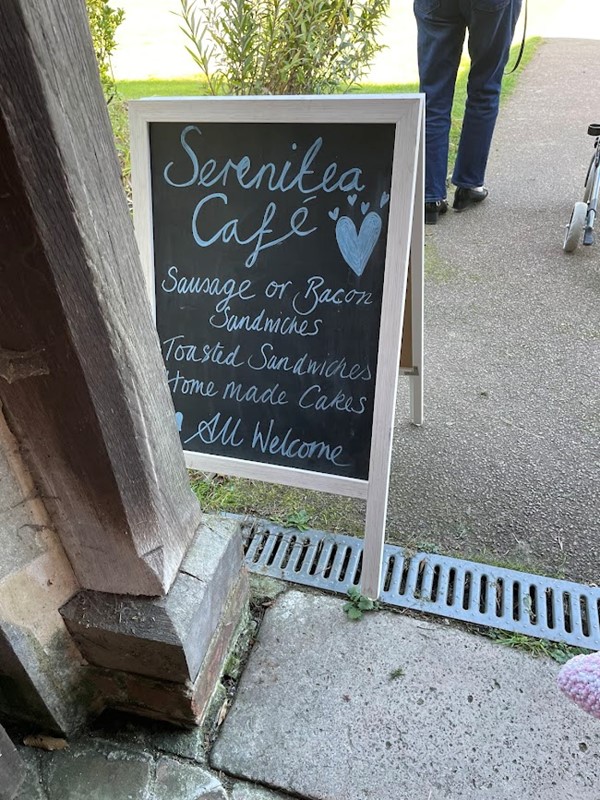 Serenitea
Café
Sausage or Bacon
Sandwiches
Toasted Sandwiches
Home made Cakes
All Welcome